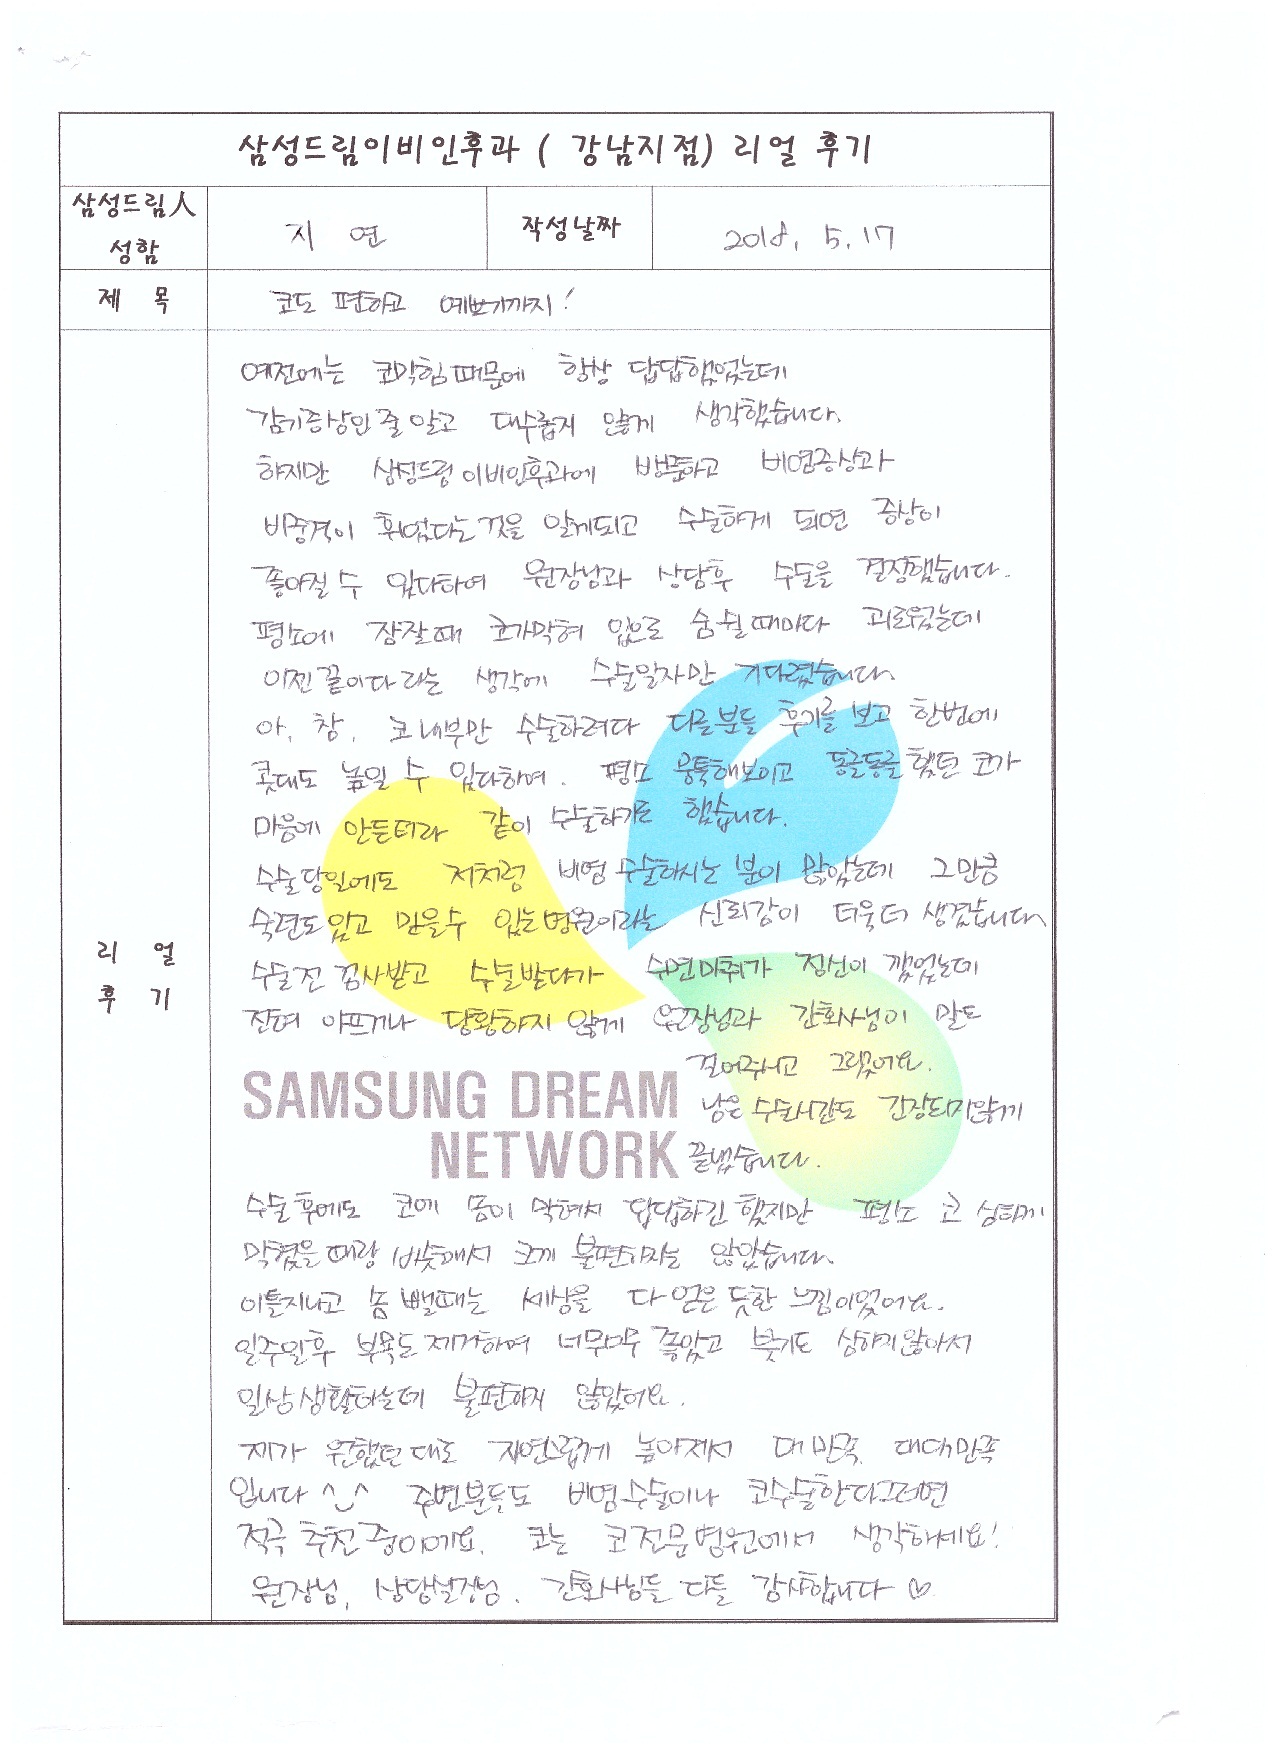 삼성드림이비인후과 ( 강남지점) 리얼 후기
삼성드림人 성함
지 연
작성날짜
2018. 5. 17
제 목
코도 편하고 예쁘기까지!
리 얼 후 기
예전에는 코막힘때문에 항상 답답했었는데
감기증상인줄알고 대수롭지 않게 생각했습니다.
하지만 삼성드림이비인후과에 방문하고 비염증상과
비중격이 휘었다는것을 알게되고 수술하게 되면 증상이
좋아질 수 있다하여 원장님과 상담후 수술을 결정했습니다.
평소에 잠잘때 코가막혀 입으로 숨쉴때마다 괴로웠는데
이젠끝이다라는 생각에 수술일자만 기다렸습니다.
아, 참, 코내부만 수술하려다 다른분들 후기를 보고 한번에
콧대도 높일 수 있다하여. 평소 뭉툭해보이고 동글동글 했던 코가
마음에 안든터라 같이 수술하기로 했습니다.
수술당일에도 저처럼 비염 수술하시는 분이 많았는데 그만큼
숙련도있고 믿을수 있는병원이라는 신뢰감이 더욱더 생겼습니다
수술전 검사받고 수술받다가 수면마취가 정신이 깼었는데
전혀 아프거나 당황하지 않게 원장님과 간호사님이 말도
걸어주시고 그랬어요.
남은 수술시간도 긴장되지않게
끝냈습니다.
SAMSUNG DREAM
NETWORK
수술후에도 코에 솜이 막혀서 답답하긴 했지만 평소 코 상태가
막혔을때랑 비슷해서 크게 불편하지는 않았습니다.
이틀지나고 솜 뺄때는 세상을 다 얻은 듯한 느낌이었어요.
일주일후 부목도 제거하며 너무너무 좋았고 붓기도 심하지않아서
일상생활하는데 불편하지 않았어요.
제가 원했던 대로 자연스럽게 높아져서 대만족 대대만족
입니다 ^_^ 주변분들도 비염수술이나 코수술한다그러면
적극 추천중이에요. 코는 코전문병원에서 생각하세요!
원장님, 상담실장님, 간호사님들 다들 감사합니다 ♡